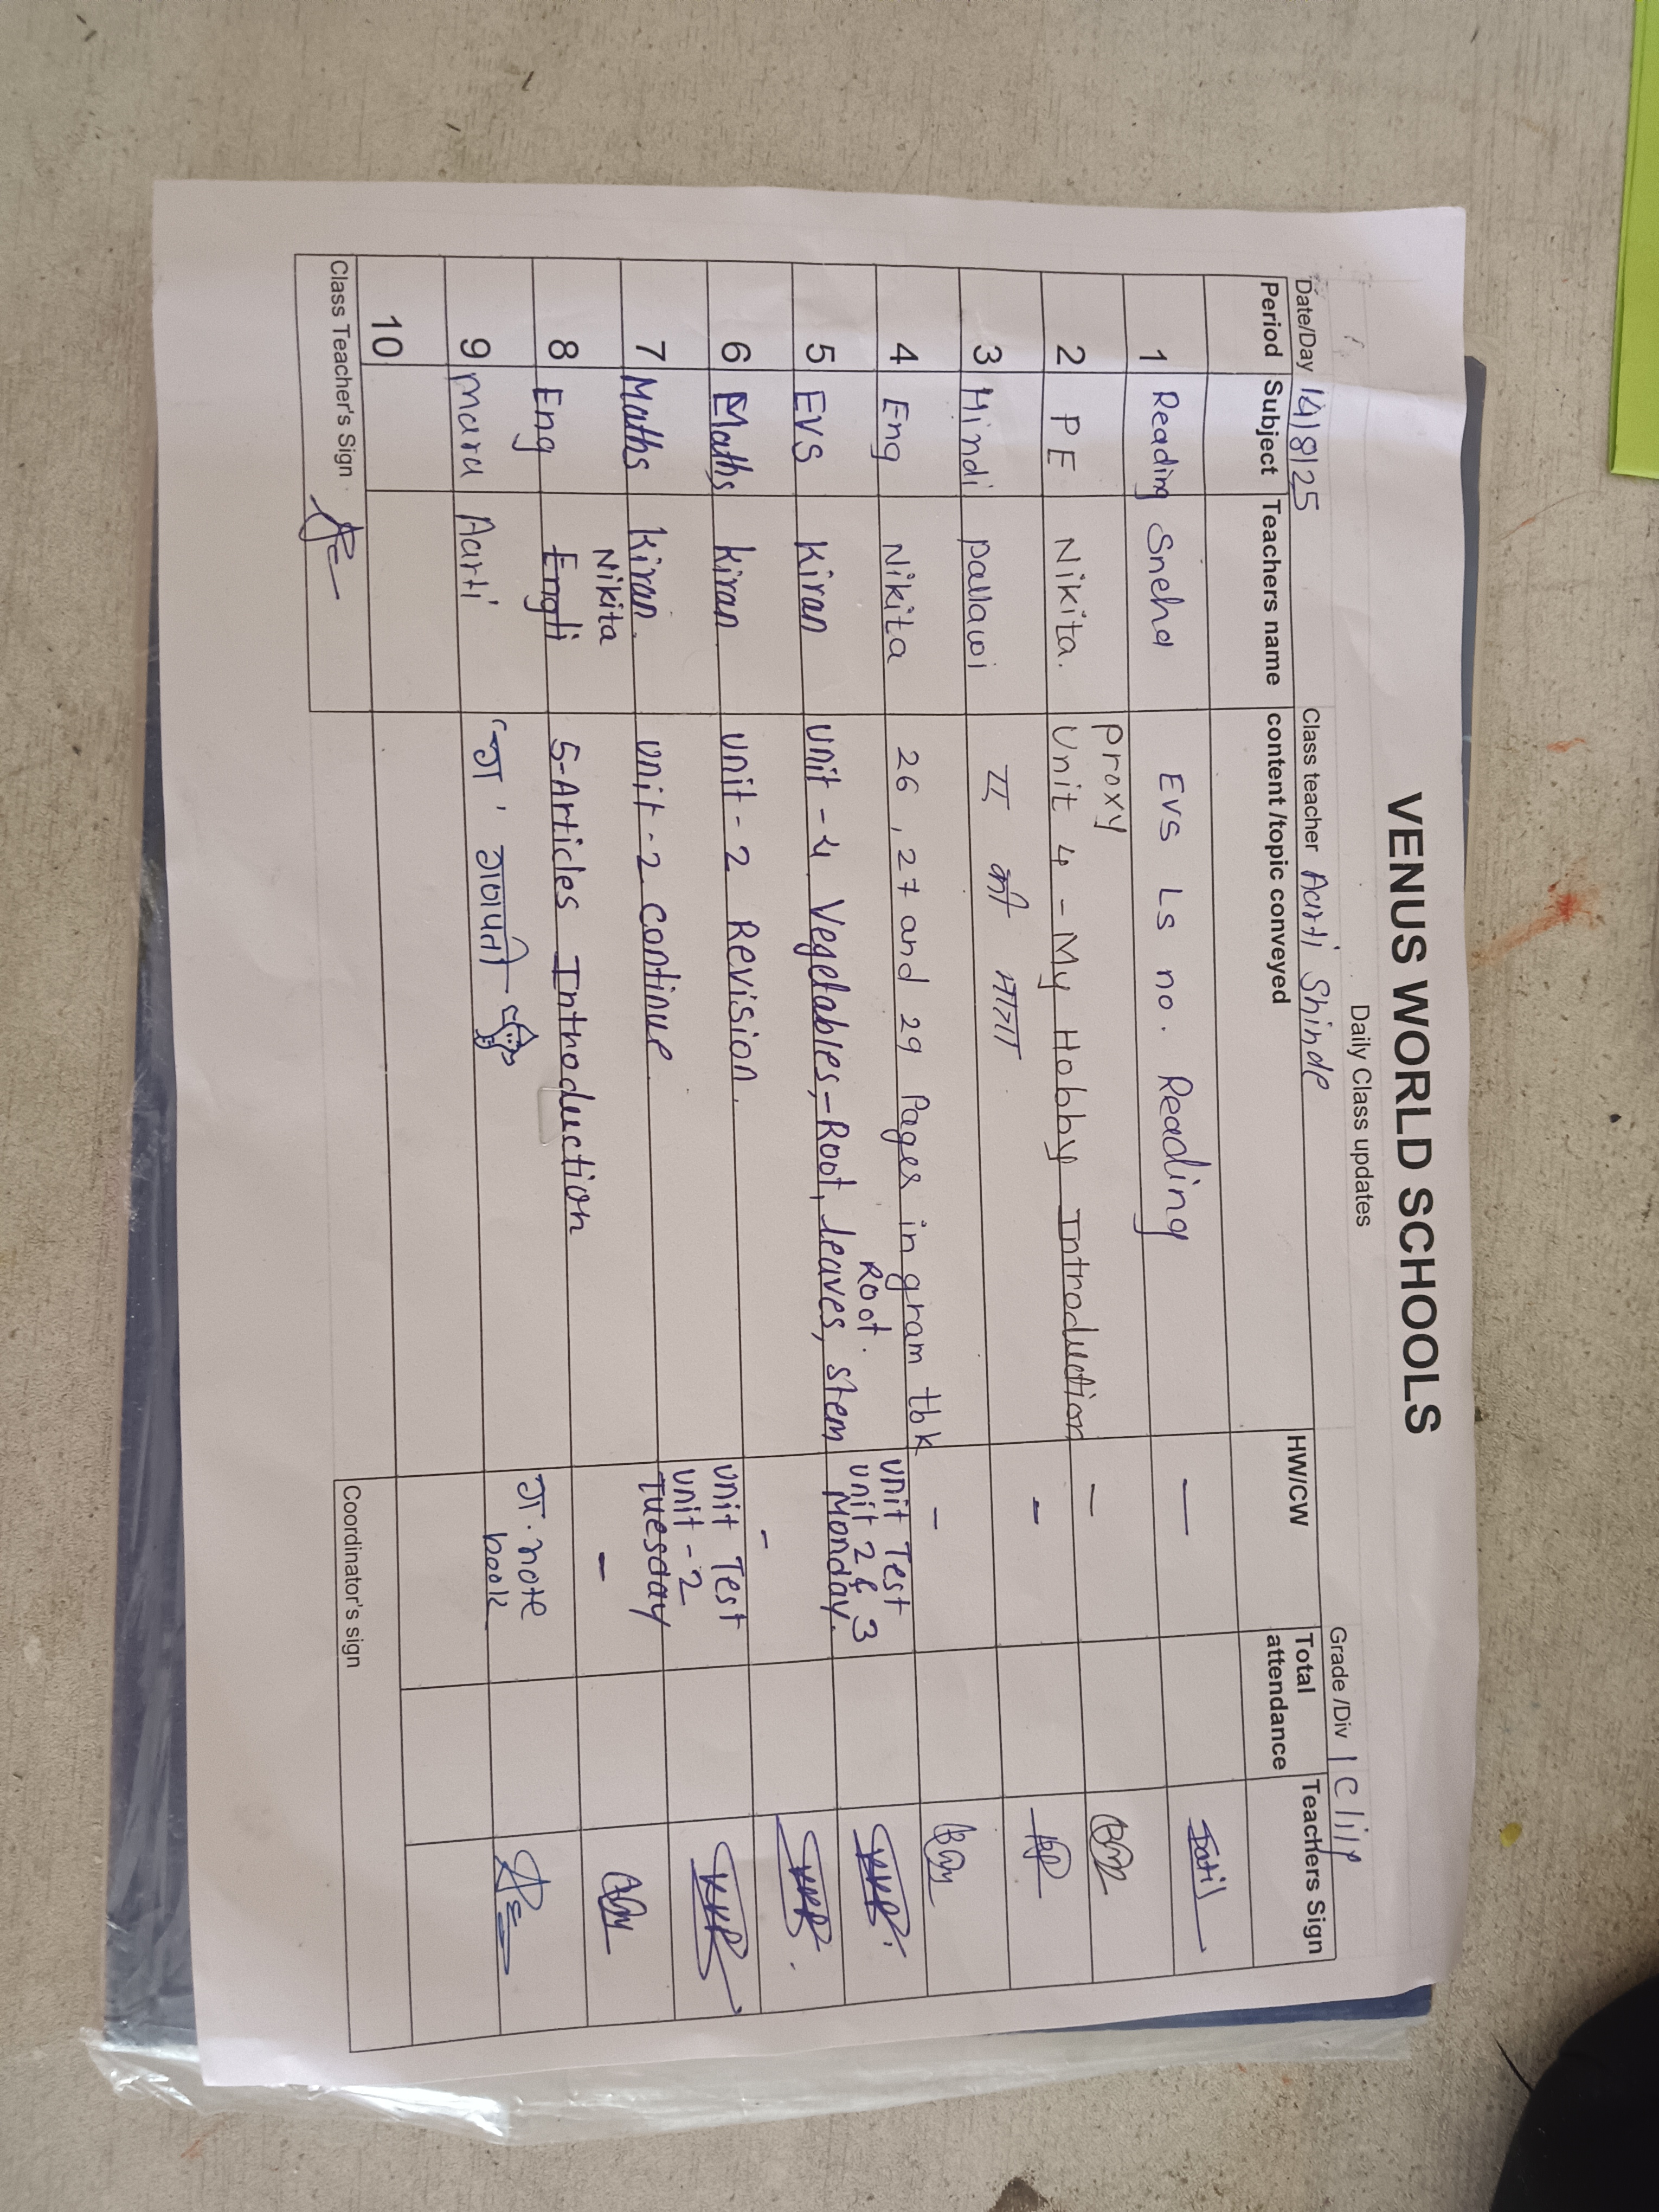 VENUS WORLD SCHOOLS
Daily Class updates
Date/Day 14/8/25 Class teacher Aarti Shinde Grade /Div 1 C/ilp
Period Subject Teachers name content /topic conveyed HW/CW Total attendance Teachers Sign
1 Reading Sneha EVS Ls no. Reading — Patil
proxy
2 PE Nikita. Unit 4 - My Hobby Introduction —
3 Hindi Pallawi ए की मात्रा -
4 Eng Nikita 26, 27 and 29 Pages in gram tbk -
Root.
5 EVS Kiran unit - 4 Vegetables,- Root, leaves, stem unit Test unit 2 & 3 Monday.
6 Maths Kiran unit - 2 Revision. -
7 Maths Kiran. unit - 2 continue unit Test unit - 2 Tuesday
Nikita
8 Eng Engli 5-Articles Introduction -
9 Mara Aarti 'ग' गणपती ग. note book
10
Class Teacher's Sign Coordinator's sign